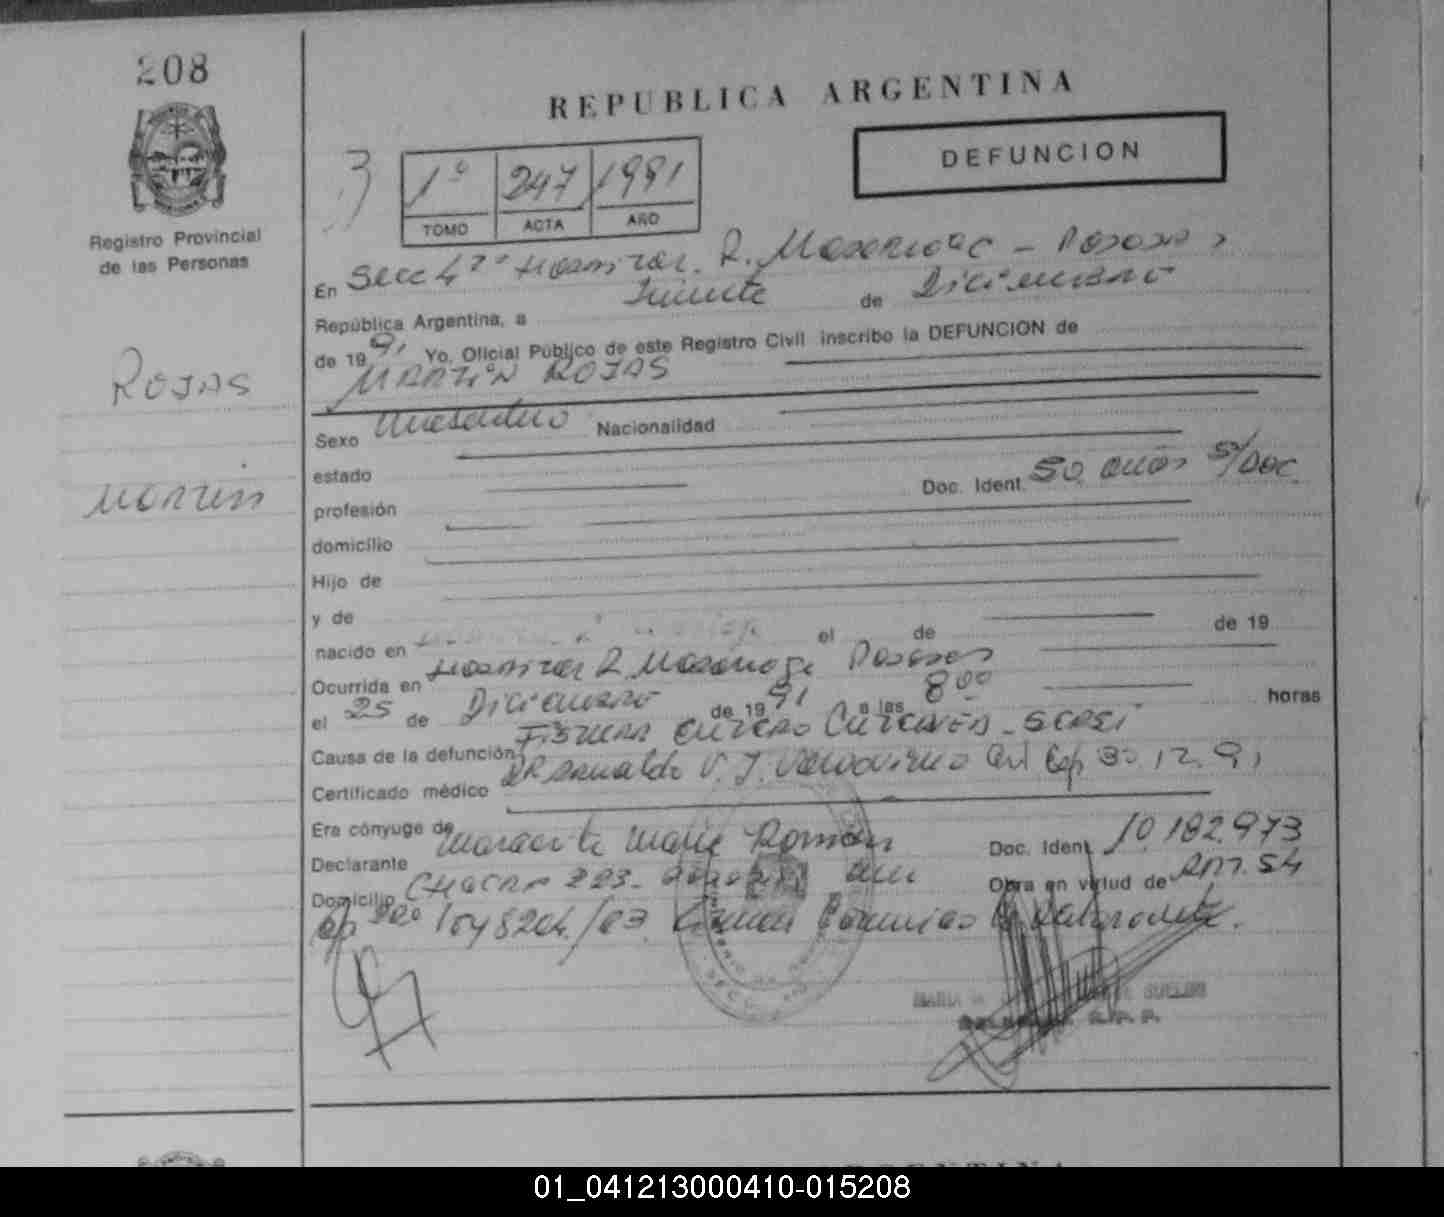 208
REPUBLICA ARGENTINA
DEFUNCION
1º 247 1991
TOMO ACTA AÑO
Registro Provincial
de las Personas
En Secc 4ta Hospital R. Madariaga - Posadas,
República Argentina, a Treinta de Diciembre
de 1991 Yo, Oficial Público de este Registro Civil inscribo la DEFUNCION de
MARTIN ROJAS
ROJAS
Sexo Masculino Nacionalidad
estado
MARTIN
profesión Doc. Ident. 50 años s/Doc.
domicilio
Hijo de
y de
nacido en el de de 19
Ocurrida en Hospital R Madariaga Posadas
el 25 de Diciembre de 1991 a las 8 00 horas
Causa de la defunción
Certificado médico DR 30.12.91
Era cónyuge de
Declarante Margarita Maria Roman Doc. Ident 10.182.973
Domicilio CHACRA 223 - Obra en virtud de Art. 54
MARIA
S.P.P.
01_041213000410-015208